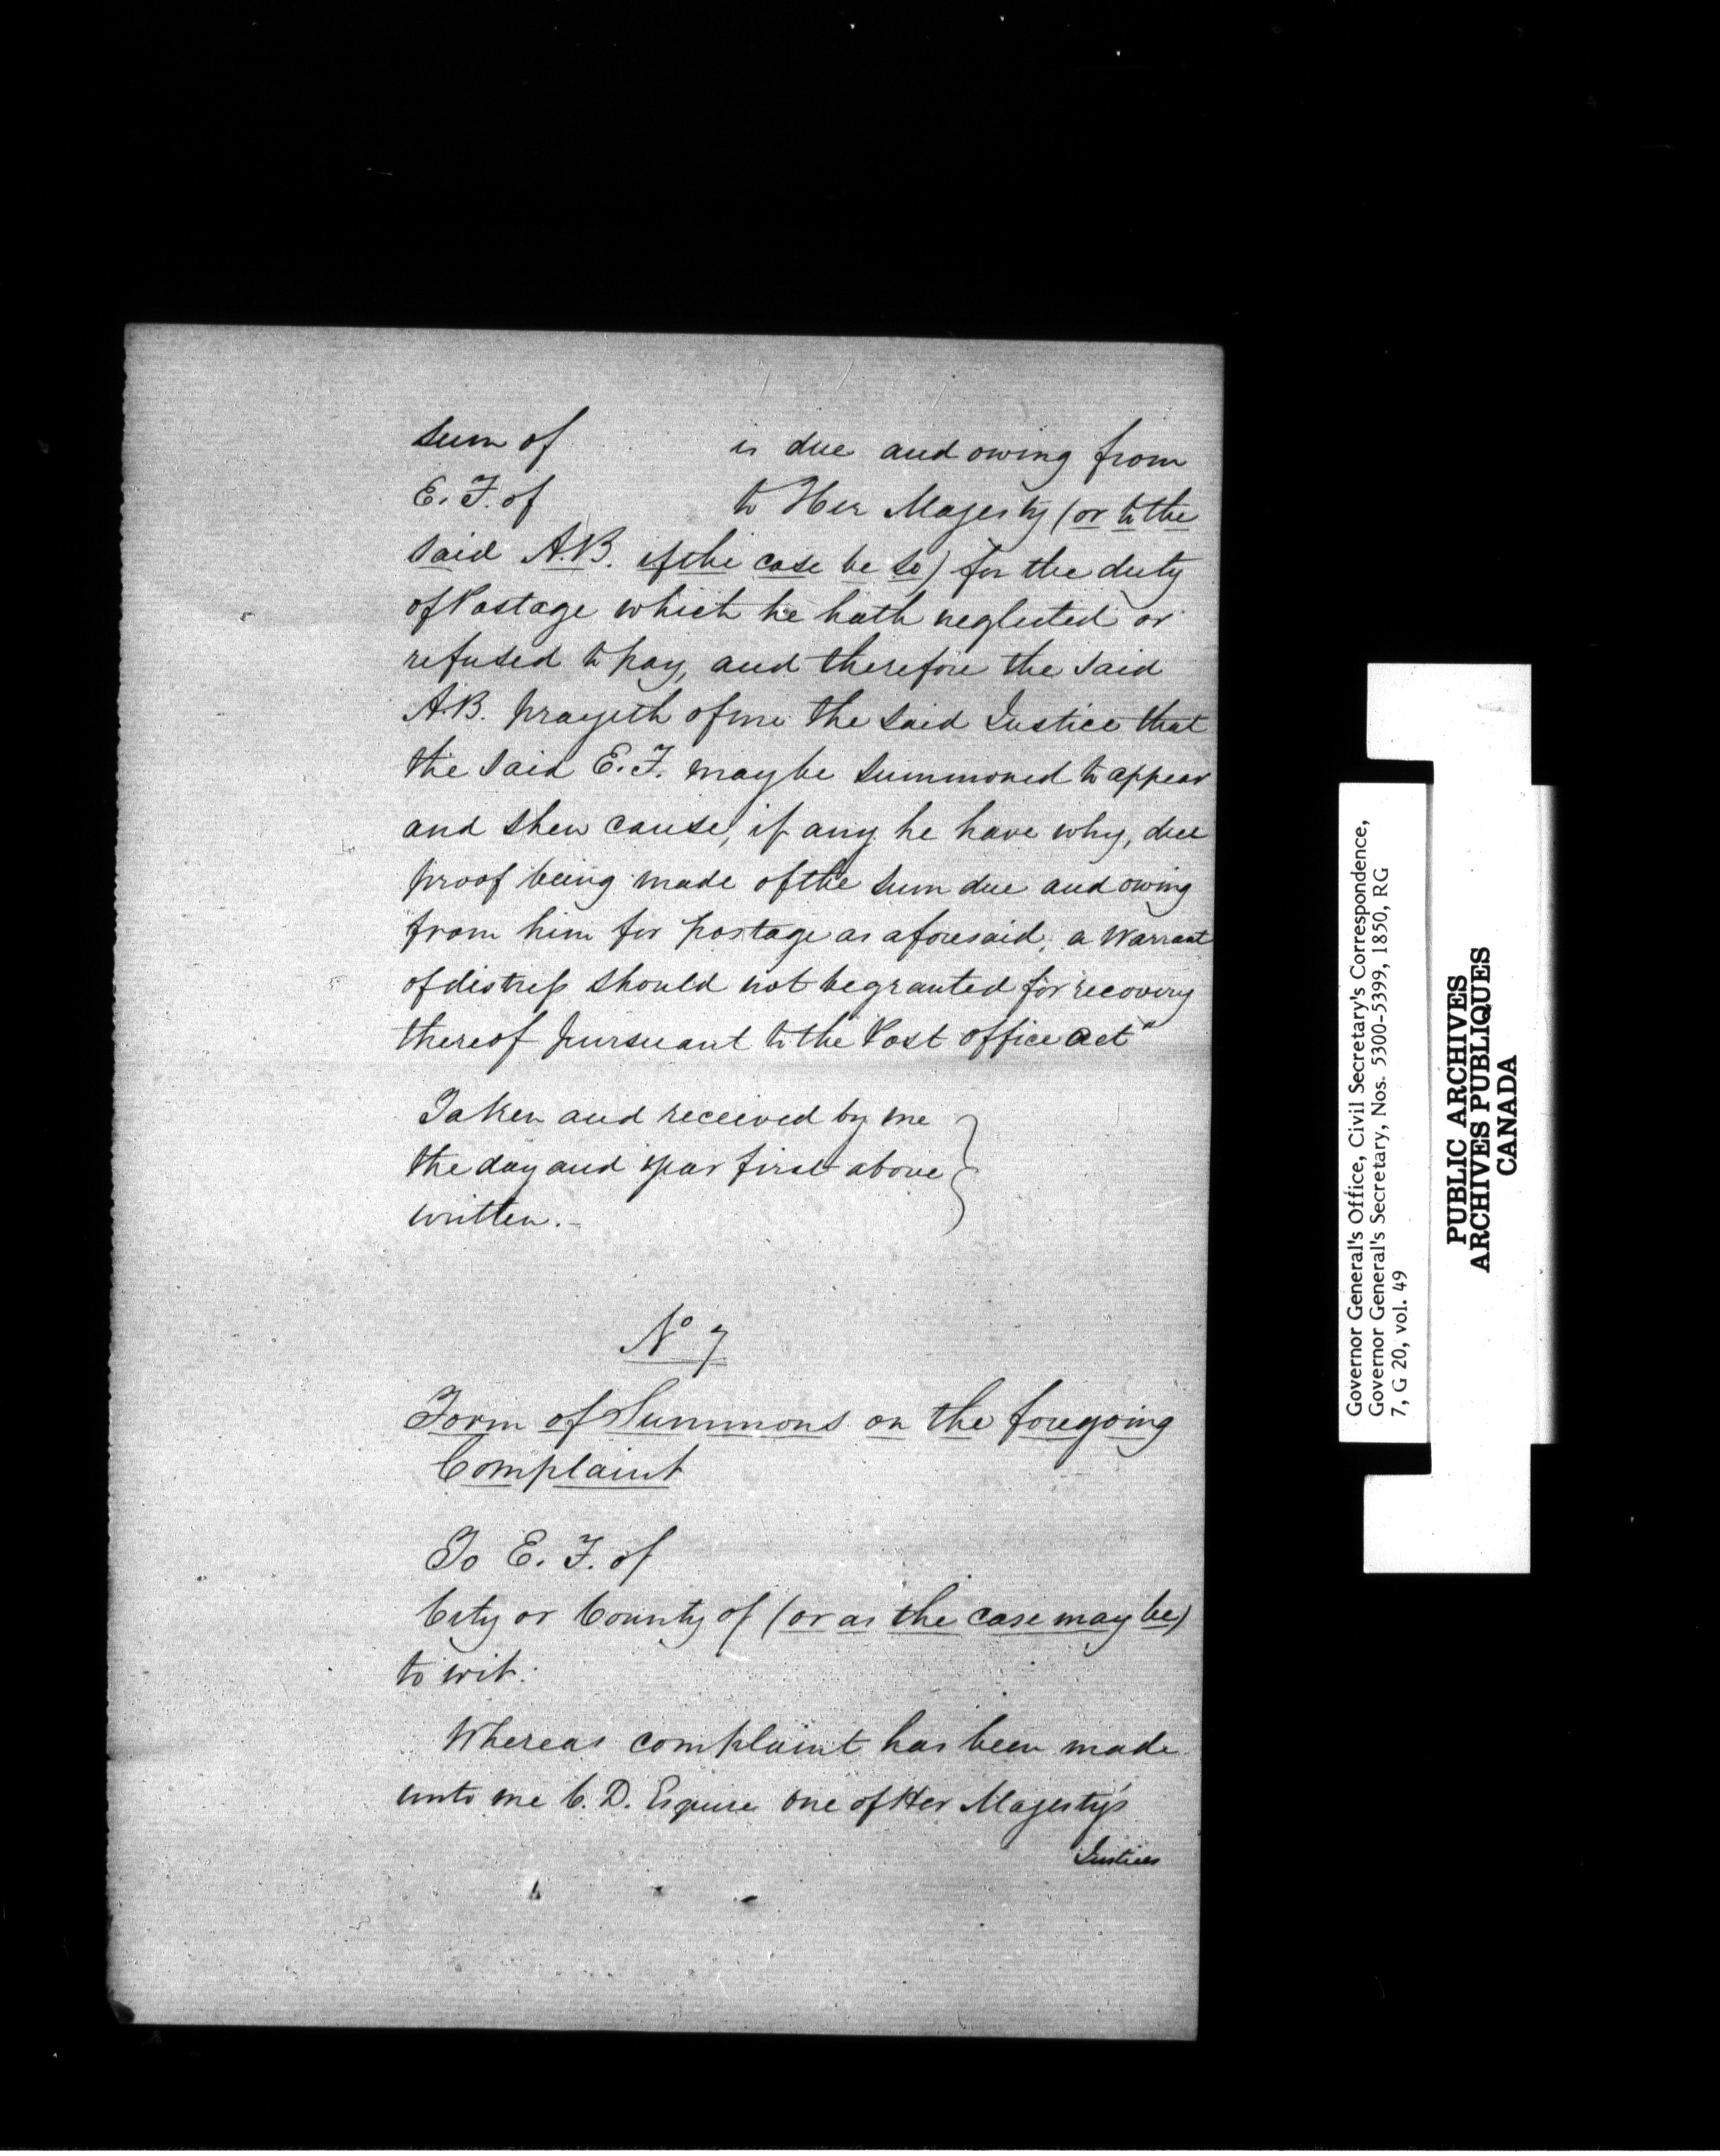 sum of is due and owing from
E. F. of to Her Majesty (or to the
said A.B. if the case be so) for the duty
of Postage which he hath neglected or
refused to pay, and therefore the said
A.B. prayeth of me the said Justice that
the said E. F. may be summoned to appear
and shew cause, if any he have why, due
proof being made of the sum due and owing
from him for postage as aforesaid, a Warrant
of distress should not be granted for recovery
thereof pursuant to the Post office Act"
Taken and received by me
the day and year first above
written.-
No 7
Form of Summons on the foregoing
Complaint
To E. F. of
City or County of (or as the case may be)
to wit.
Whereas complaint has been made
unto me C. D. Esquire one of Her Majesty's
Justices
Governor General's Office, Civil Secretary's Correspondence,
Governor General's Secretary, Nos. 5300-5399, 1850, RG
7, G 20, vol. 49
PUBLIC ARCHIVES
ARCHIVES PUBLIQUES
CANADA